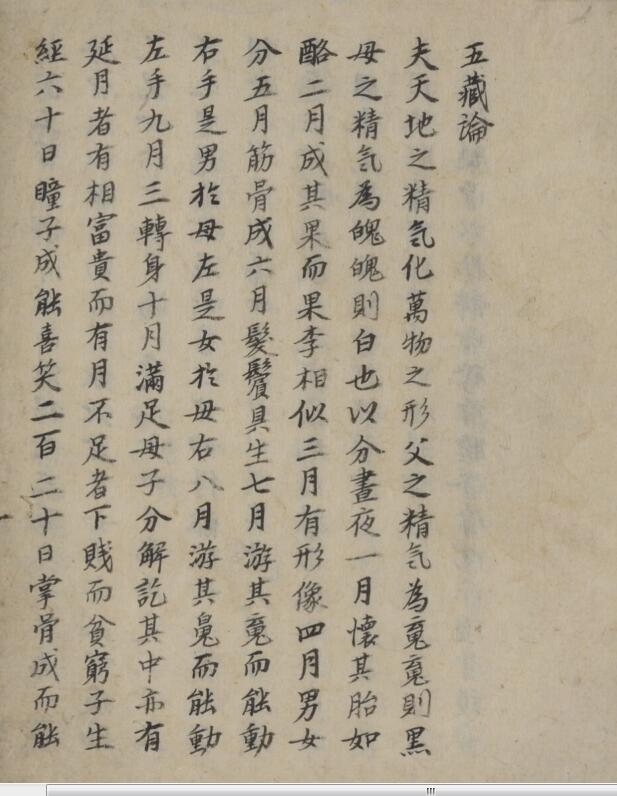 五藏論
夫天地之精氣化萬物之形父之精氣為䰟䰟則黑
母之精氣為魄魄則白也以分晝夜一月懷其胎如
酪二月成其果而果李相似三月有形像四月男女
分五月筋骨成六月髮鬢具生七月游其䰟而能動
右手是男於母左是女於母右八月游其魄而能動
左手九月三轉身十月滿足母子分解訖其中亦有
延月者有相富貴而有月不足者下賤而貧窮子生
經六十日瞳子成能喜笑二百二十日掌骨成而能